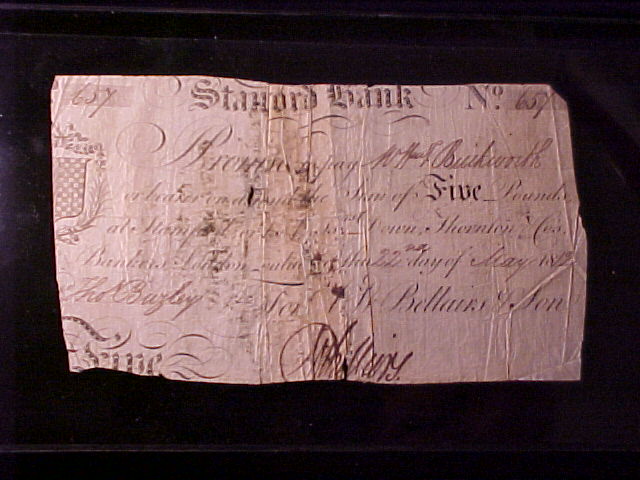 657 Stamford Bank No. 657
Promise to pay Wm F Buckworth
or bearer on demand the Sum of Five Pounds
at Stamford or at Down, Thornton & Cos.
Bankers London value the 22nd day of May 1812
Thos Bazley For Bellairs & Son
Five Bellairs